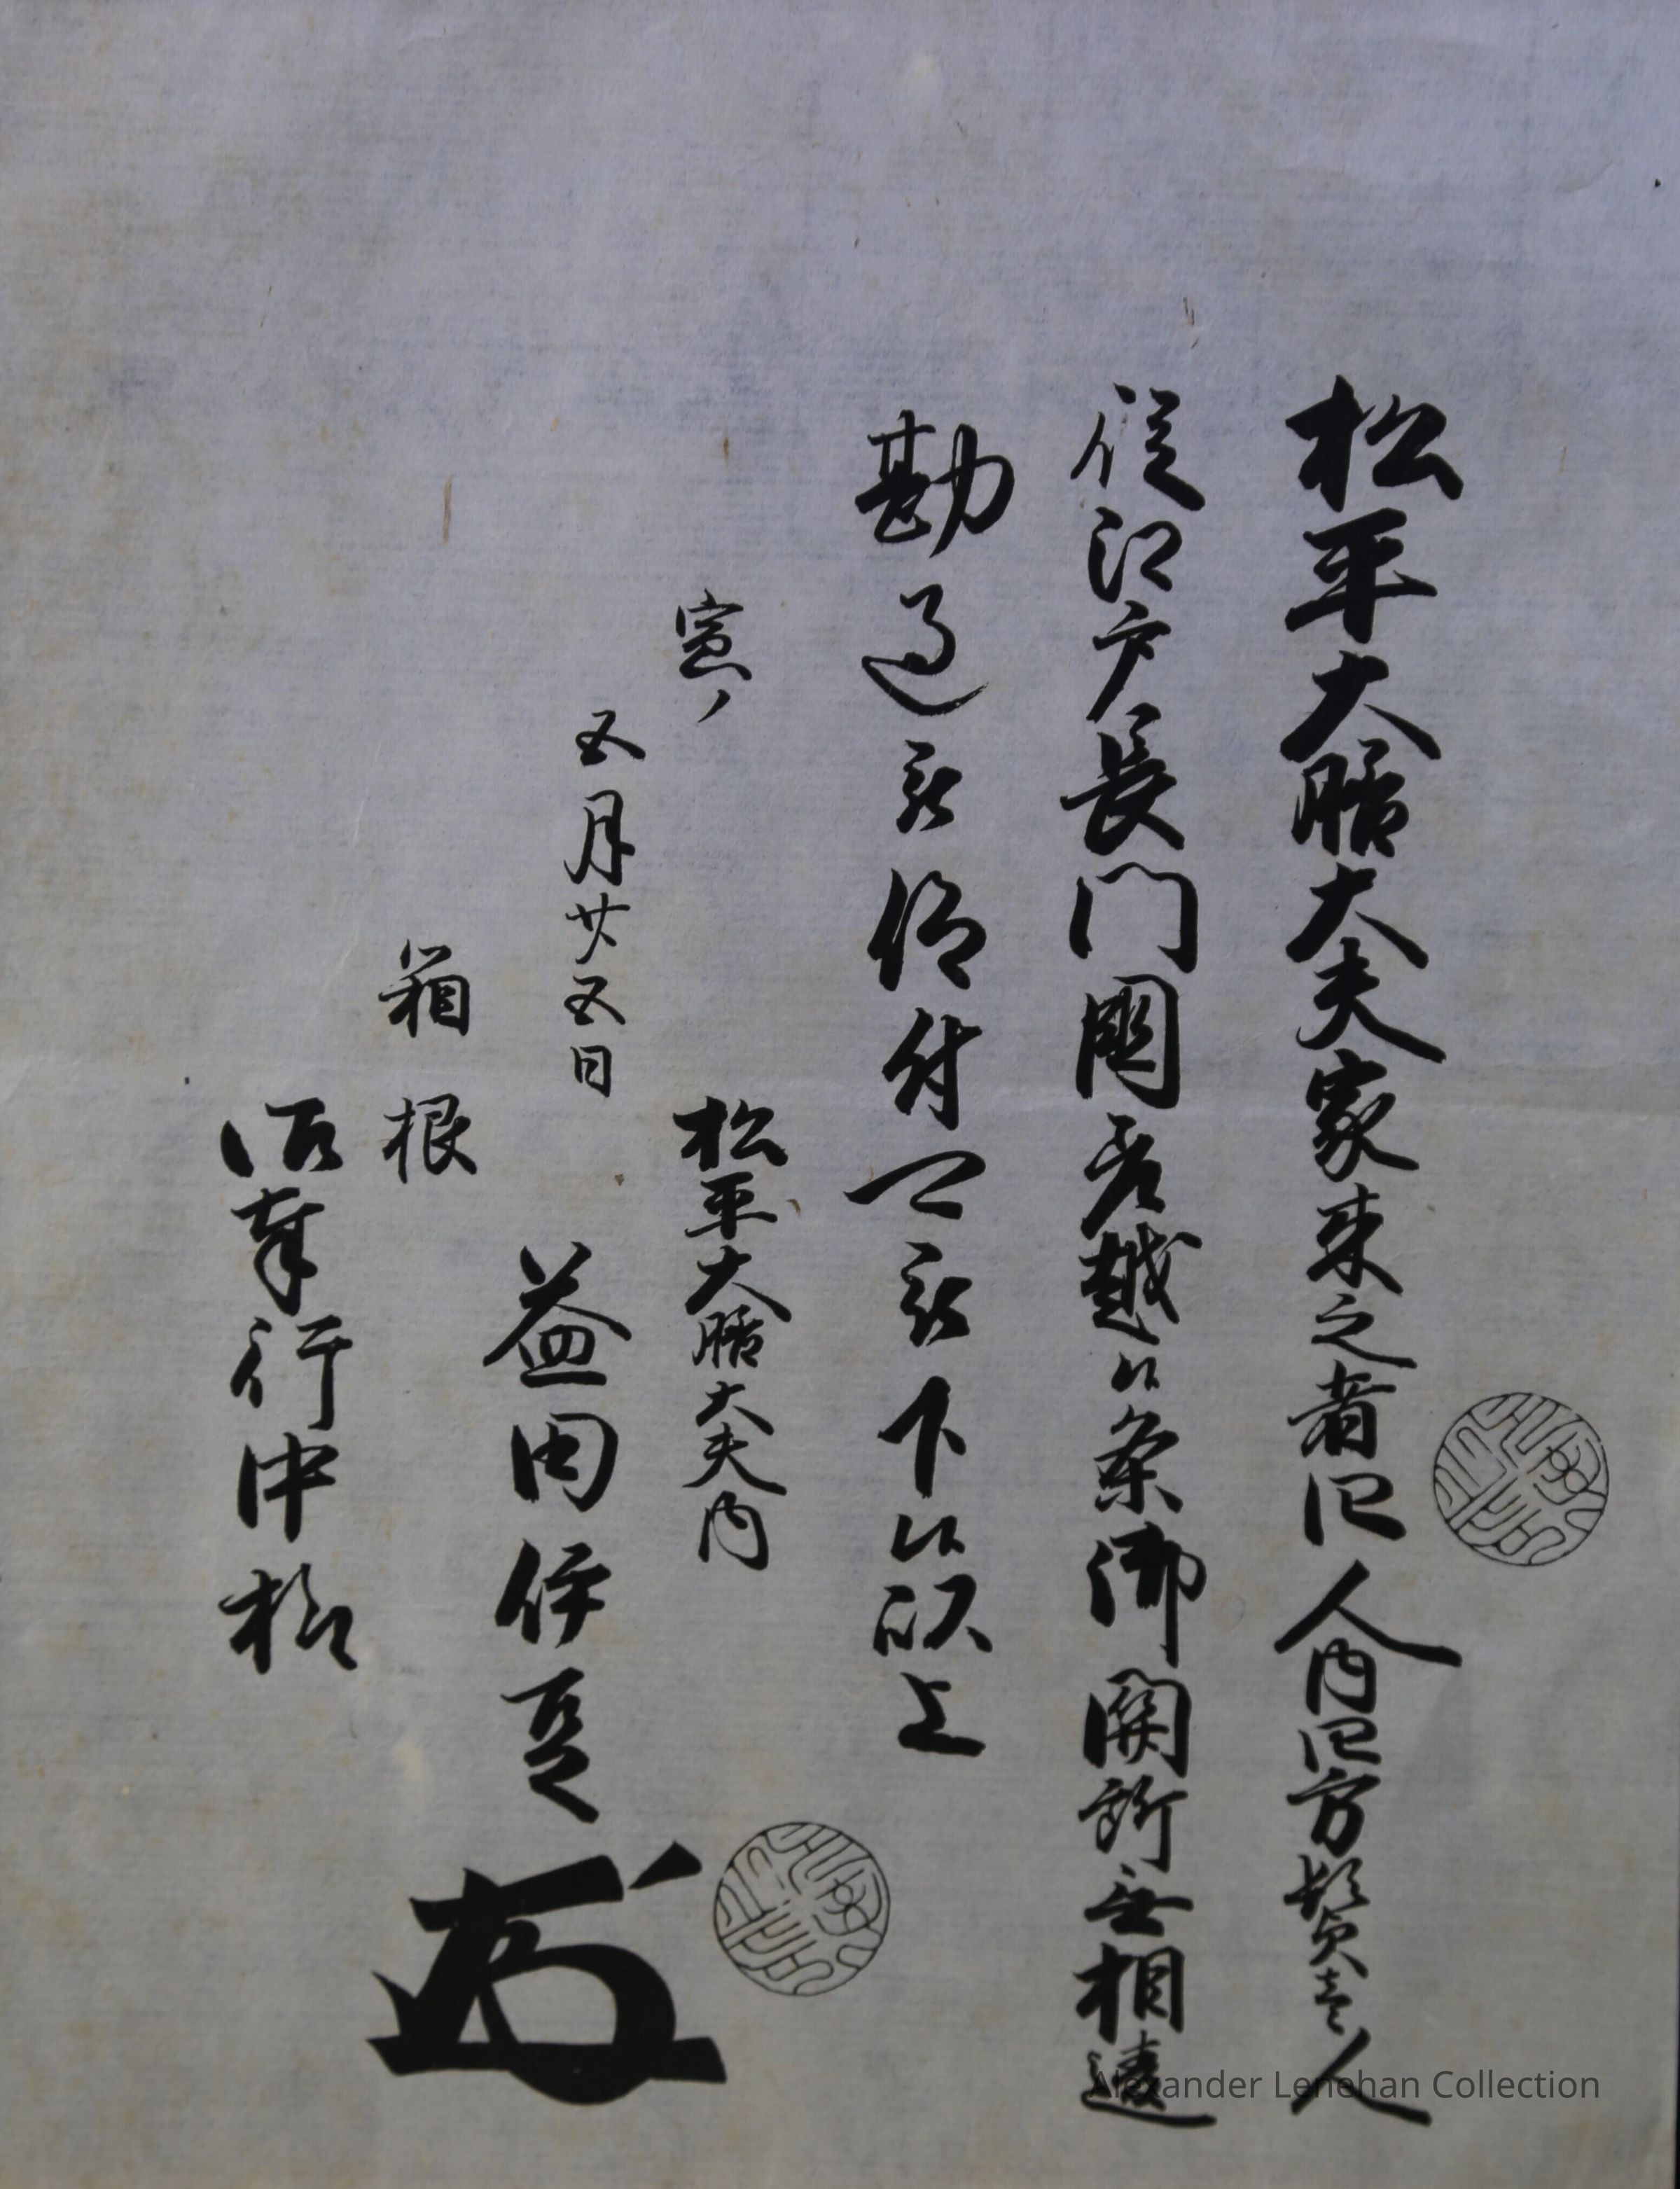 松平大膳大夫家来之者四人内四方髪壱人
従江戸長門国差越候条御関所無相違
勘過被仰付可被下候以上
寅ノ
五月廿五日
松平大膳大夫内
益田伊豆
箱根
御奉行中様
Alexander Lenehan Collection